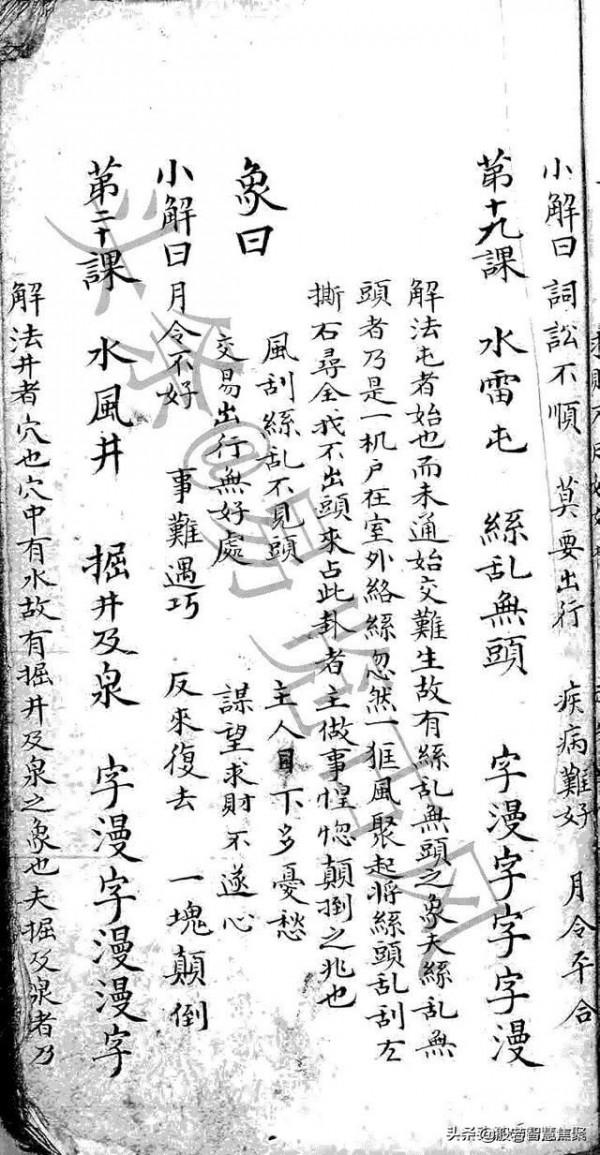 小解曰 詞訟不順 莫要出行 疾病難好 月令平合
第十九課 水雷屯 絲乱無頭 字漫字字字漫
解法屯者始也而未通始交難生故有絲乱無頭之象夫絲乱無
頭者乃是一机户在室外絡絲忽然一狂風聚起将絲頭乱刮左
撕右尋全找不出頭來占此卦者主做事惶惚顛倒之兆也
象曰
風刮絲乱不見頭 主人目下多憂愁
交易出行無好處 謀望求財不遂心
小解曰月令不好 事難遇巧 反來復去 一塊顛倒
第二十課 水風井 掘井及泉 字漫字漫漫字
解法井者穴也穴中有水故有掘井及泉之象也夫掘及泉者乃
头条@易览古网
头条@般若智慧焦聚